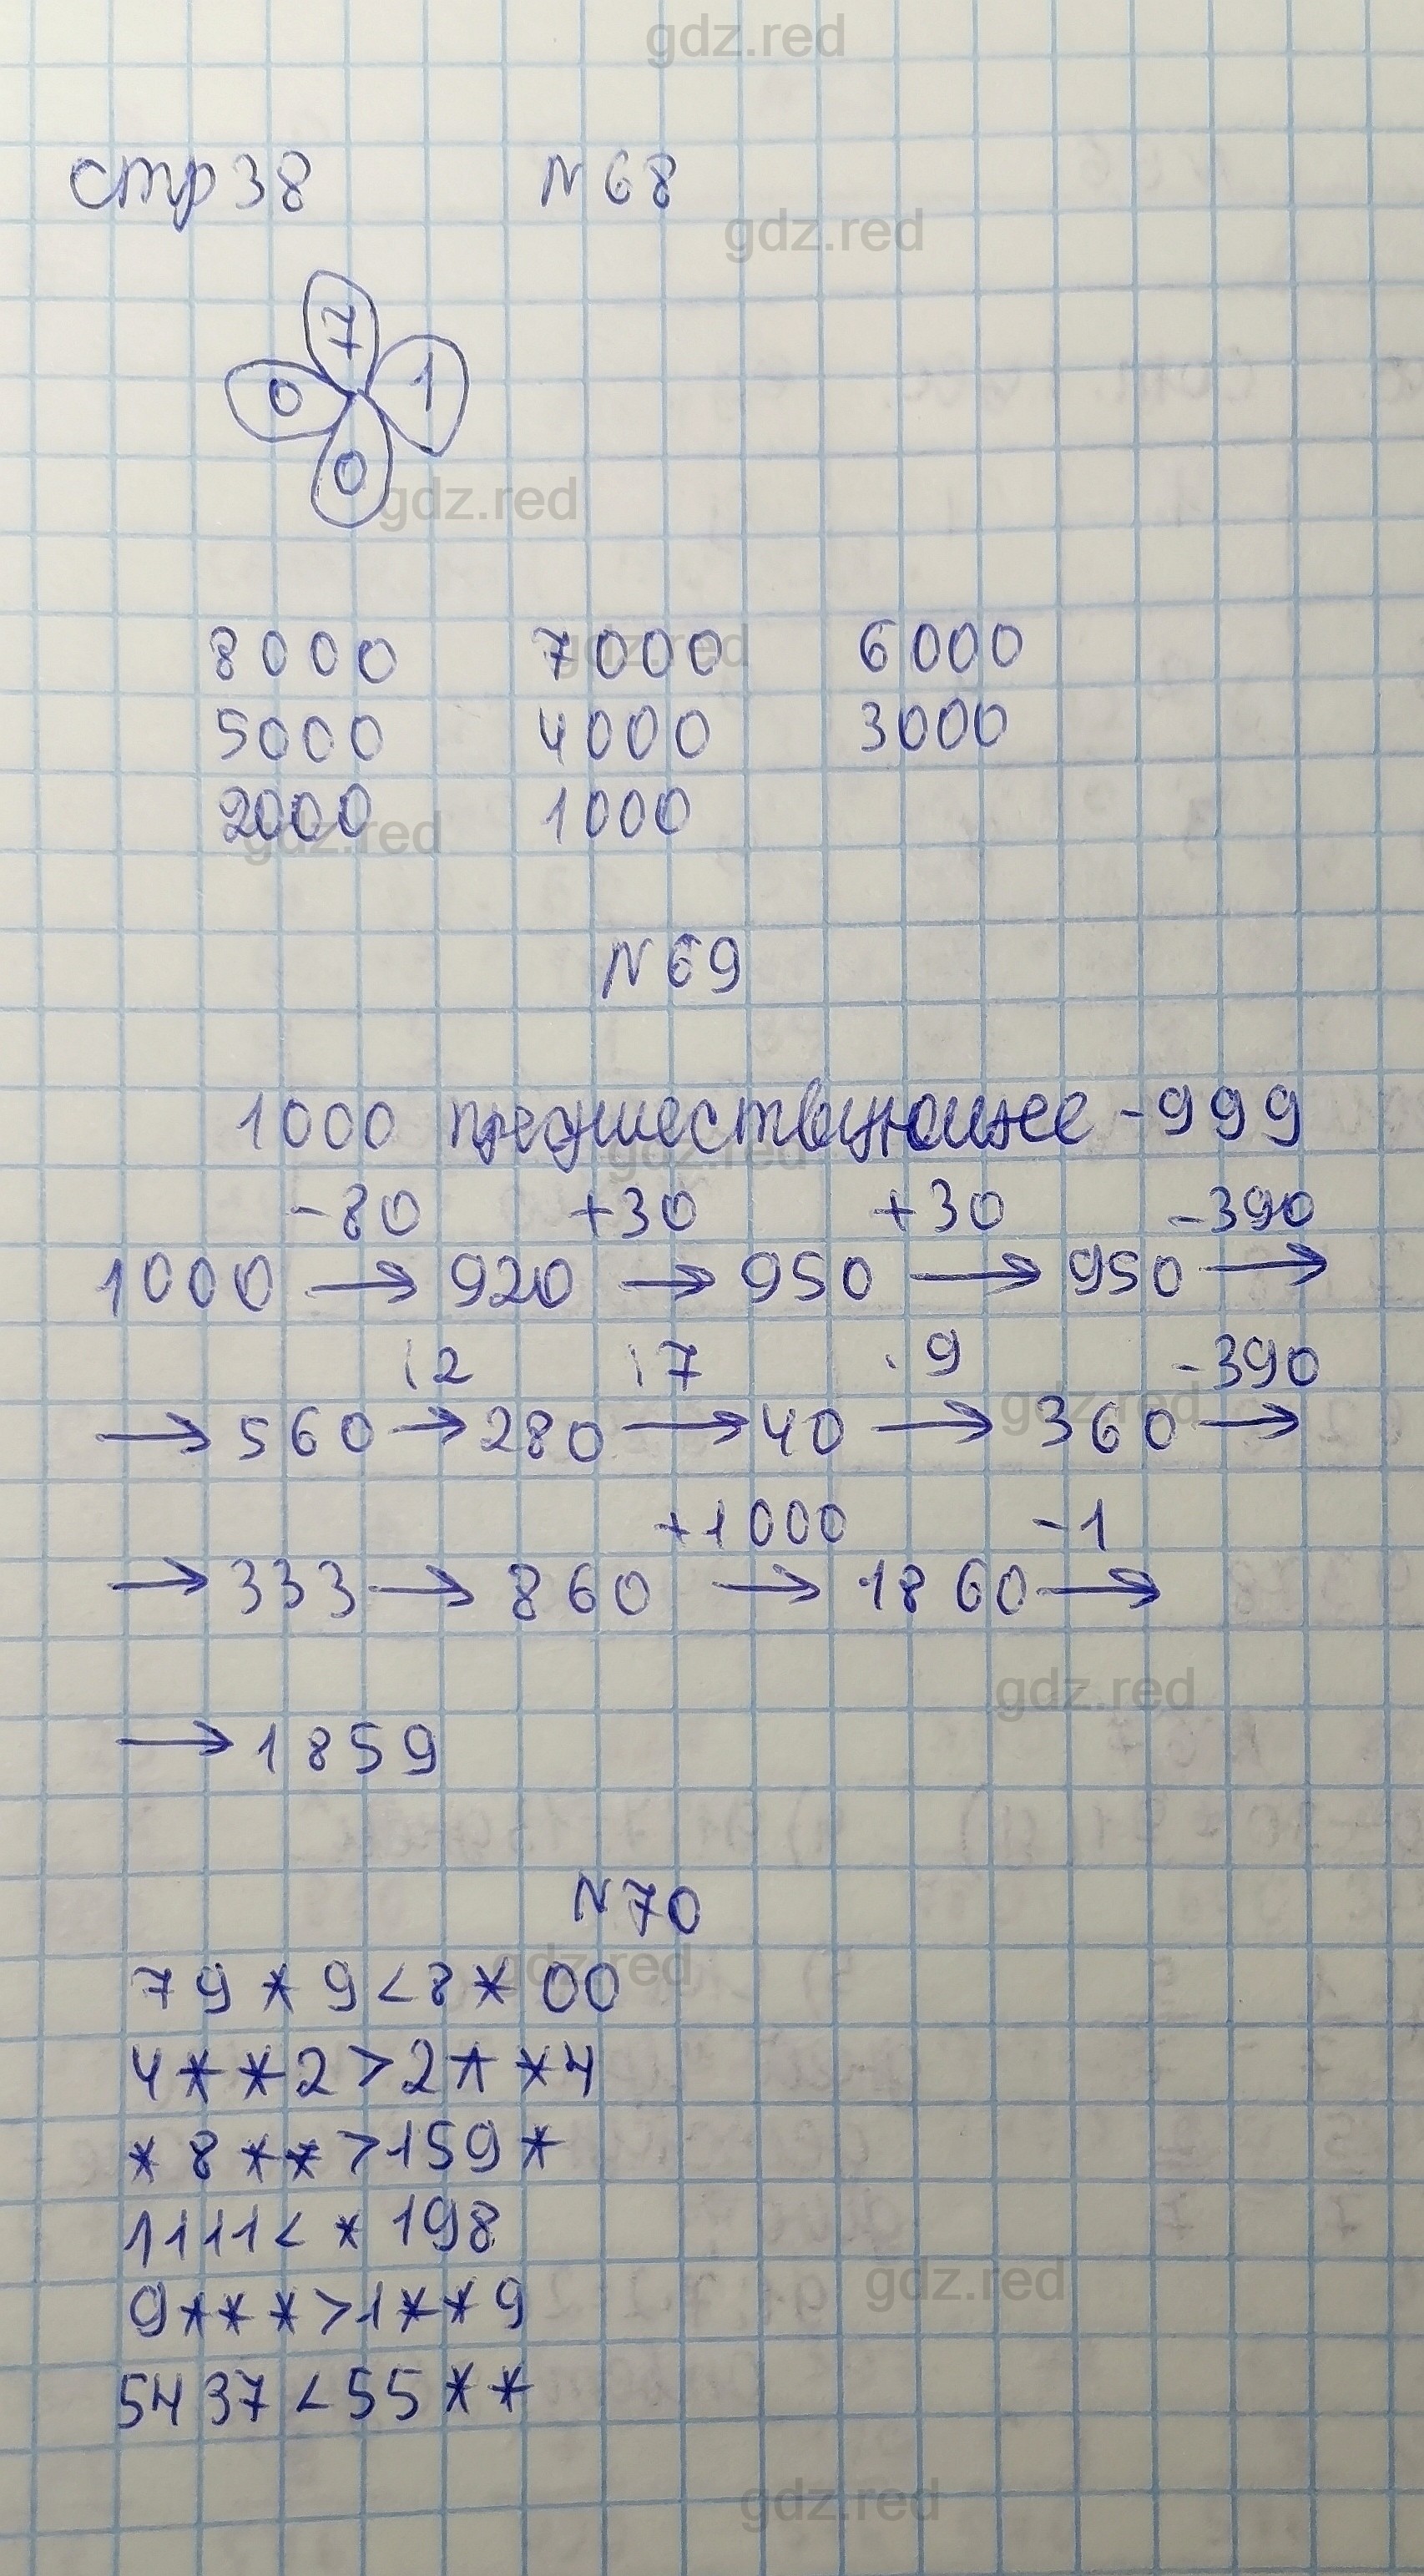 gdz.red
стр 38 N 68
gdz.red
7
0 1
0
gdz.red
8000 7000 6000
gdz.red
5000 4000 3000
2000 1000
gdz.red
N 69
1000 предшествующее - 999
gdz.red
-80 +30 +30 -390
1000 → 920 → 950 → 950 →
:2 :7 ·9 -390
→ 560 → 280 → 40 → 360 →
gdz.red
+1000 -1
→ 333 → 860 → 1860 →
gdz.red
→ 1859
N 70
gdz.red
79*9<8*00
4**2>2**4
*8**>159*
1111<*198
gdz.red
9***>1**9
5437<55**
gdz.red